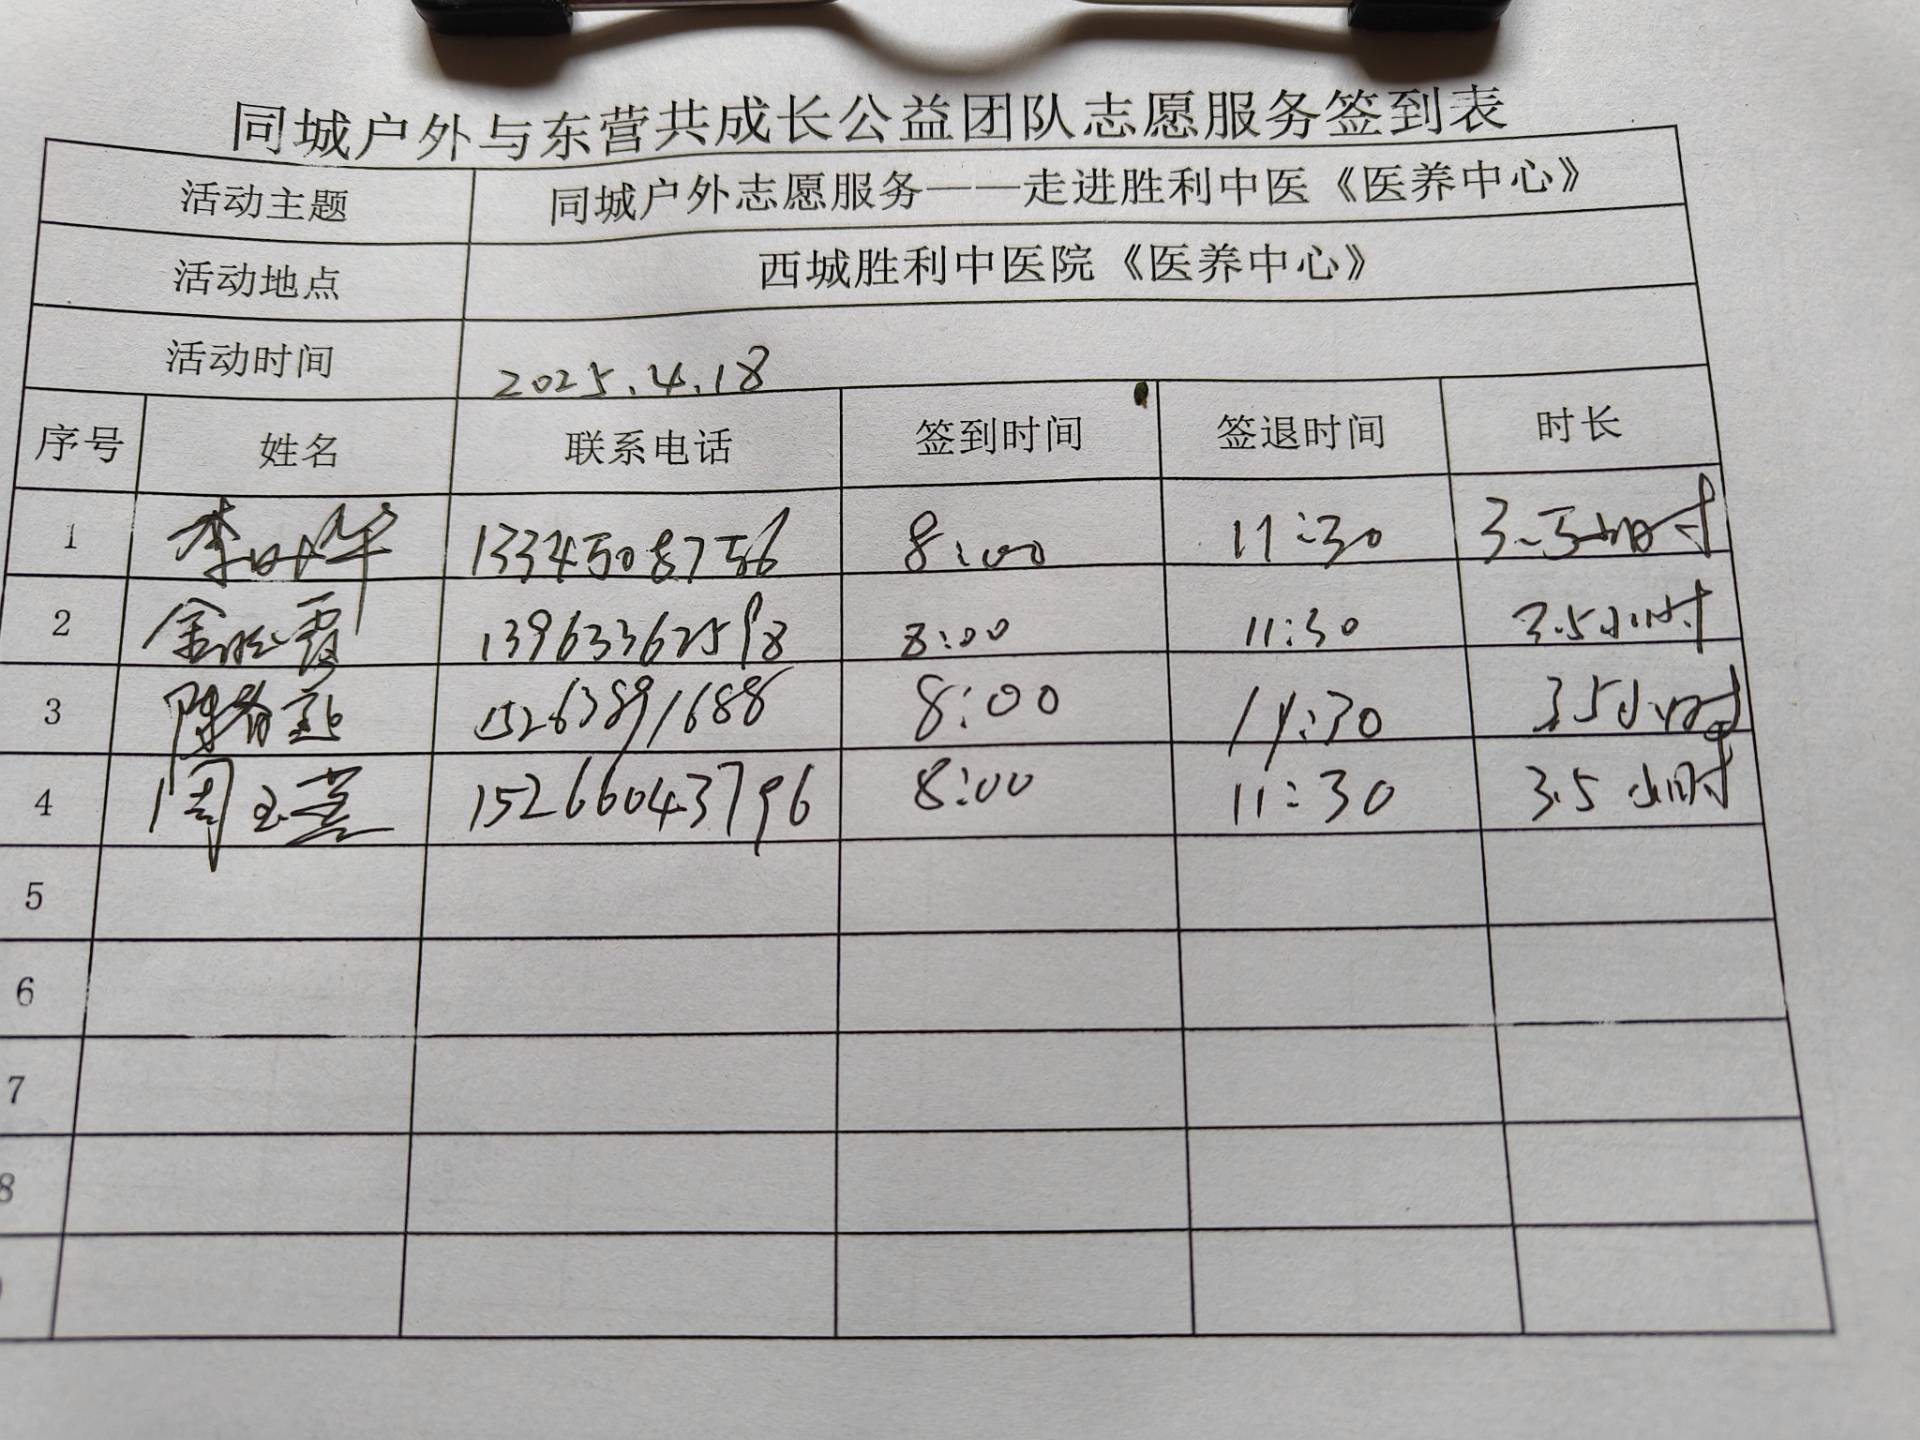 同城户外与东营共成长公益团队志愿服务签到表
活动主题 同城户外志愿服务——走进胜利中医《医养中心》
活动地点 西城胜利中医院《医养中心》
活动时间 2025.4.18
序号 姓名 联系电话 签到时间 签退时间 时长
1 李 13345087556 8:00 11:30 3.5小时
2 金 霞 13963362598 8:00 11:30 3.5小时
3 陈 15263891688 8:00 11:30 3.5小时
4 周玉 15266043796 8:00 11:30 3.5小时
5
6
7
8